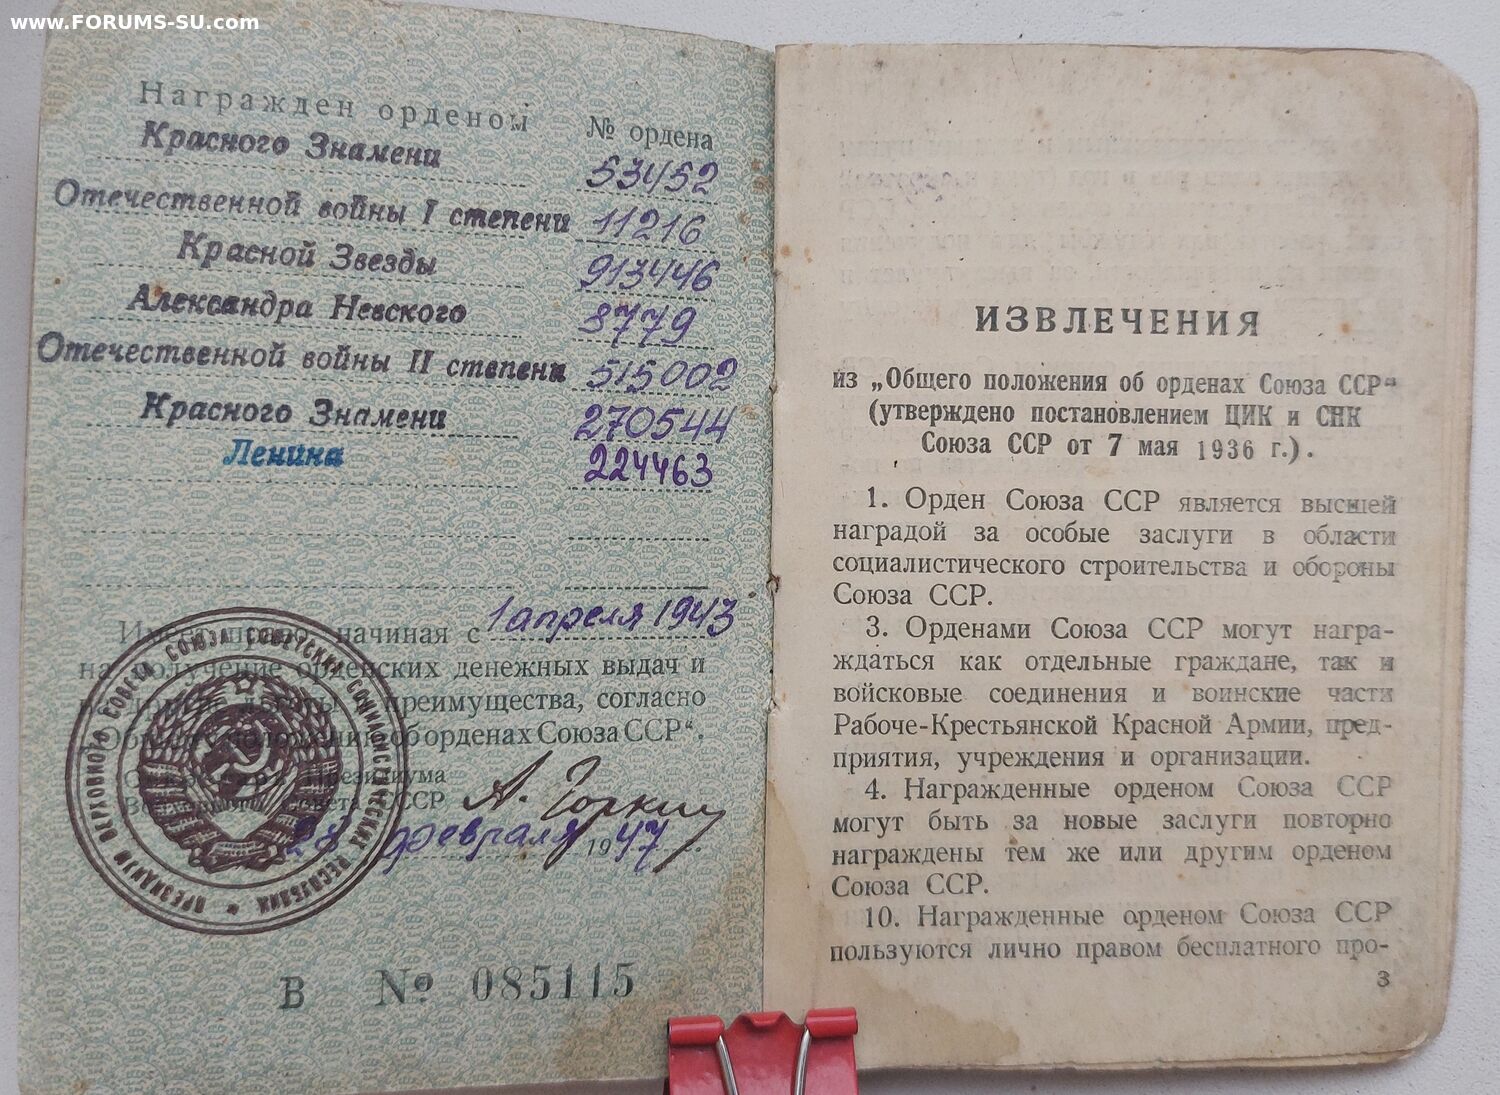 www.FORUMS-SU.com
Награжден орденом
№ ордена
Красного Знамени 53452
Отечественной войны I степени 11216
Красной Звезды 913446
Александра Невского 8779
Отечественной войны II степени 515002
Красного Знамени 270544
Ленина 224463
Имеет право, начиная с 1 апреля 1943
на получение орденских денежных выдач и
преимущества, согласно
об орденах Союза ССР“.
Президиума
Совета СССР А. Горкин
февраля 1947
ПРЕЗИДИУМ ВЕРХОВНОГО СОВЕТА СОЮЗА СОВЕТСКИХ СОЦИАЛИСТИЧЕСКИХ РЕСПУБЛИК
В № 085115
ИЗВЛЕЧЕНИЯ
из „Общего положения об орденах Союза ССР“
(утверждено постановлением ЦИК и СНК
Союза ССР от 7 мая 1936 г.).
1. Орден Союза ССР является высшей
наградой за особые заслуги в области
социалистического строительства и обороны
Союза ССР.
3. Орденами Союза ССР могут награ-
ждаться как отдельные граждане, так и
войсковые соединения и воинские части
Рабоче-Крестьянской Красной Армии, пред-
приятия, учреждения и организации.
4. Награжденные орденом Союза ССР
могут быть за новые заслуги повторно
награждены тем же или другим орденом
Союза ССР.
10. Награжденные орденом Союза ССР
пользуются лично правом бесплатного про-
3